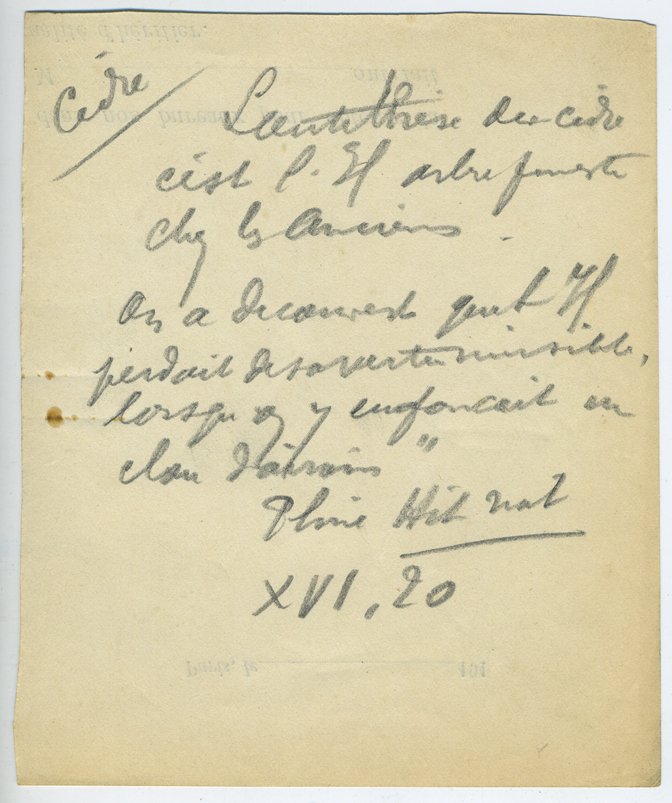 Cèdre
L'antithèse du cèdre
c'est l'If arbre funeste
chez les Anciens.
On a découvert que l'If
perdait de sa vertu nuisible,
lorsqu'on y enfonçait un
clou d'airain"
Pline Hist nat
XVI, 20
Paris, le 191